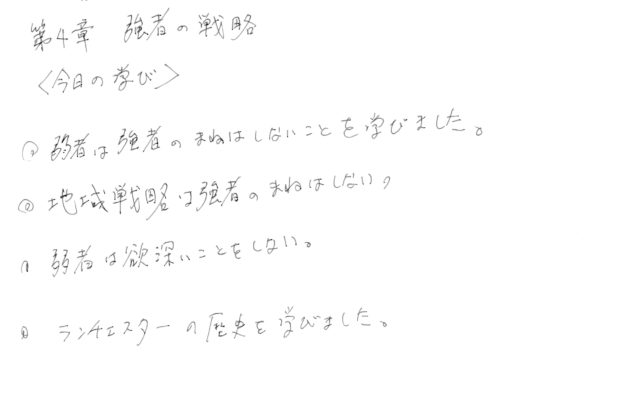 第4章 強者の戦略
〈今日の学び〉
弱者は強者のまねはしないことを学びました。
地域戦略は強者のまねはしない
弱者は欲深いことをしない。
ランチェスターの歴史を学びました。